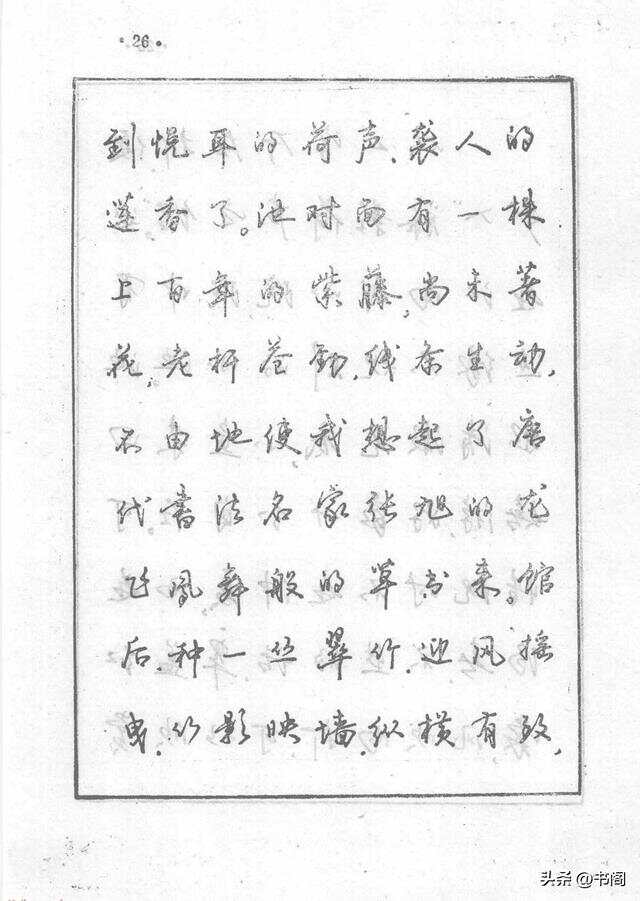 ·26·
到悦耳的荷声、袭人的
莲香了。池对面有一株
上百年的紫藤，尚未着
花，老杆苍劲，线条生动，
不由地使我想起了唐
代書法名家张旭的龙
飞凤舞般的草书来。馆
后，种一丛翠竹，迎风摇
曳，竹影映墙，纵横有致，
头条@书阁